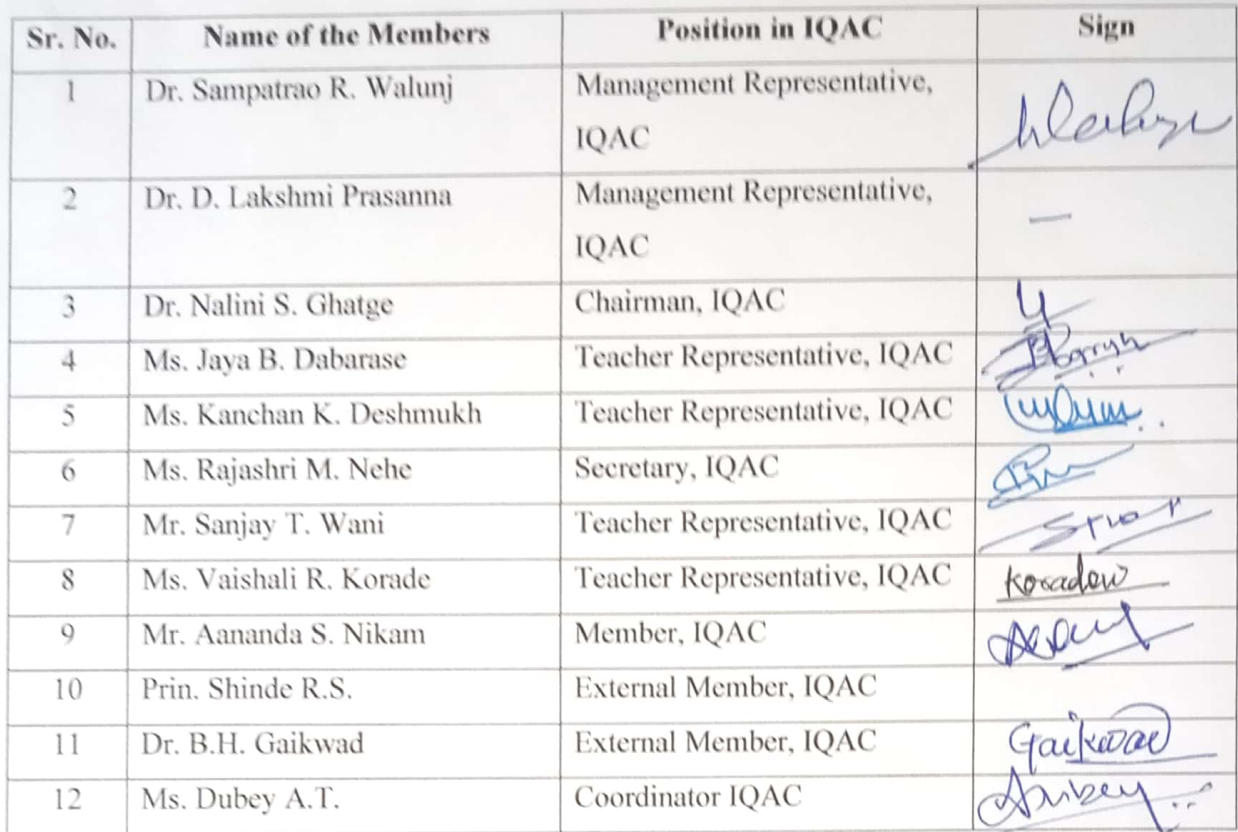 Sr. No. Name of the Members Position in IQAC Sign
1 Dr. Sampatrao R. Walunj Management Representative,
IQAC
2 Dr. D. Lakshmi Prasanna Management Representative, —
IQAC
3 Dr. Nalini S. Ghatge Chairman, IQAC
4 Ms. Jaya B. Dabarase Teacher Representative, IQAC
5 Ms. Kanchan K. Deshmukh Teacher Representative, IQAC
6 Ms. Rajashri M. Nehe Secretary, IQAC
7 Mr. Sanjay T. Wani Teacher Representative, IQAC
8 Ms. Vaishali R. Korade Teacher Representative, IQAC
9 Mr. Aananda S. Nikam Member, IQAC
10 Prin. Shinde R.S. External Member, IQAC
11 Dr. B.H. Gaikwad External Member, IQAC Gaikwad
12 Ms. Dubey A.T. Coordinator IQAC